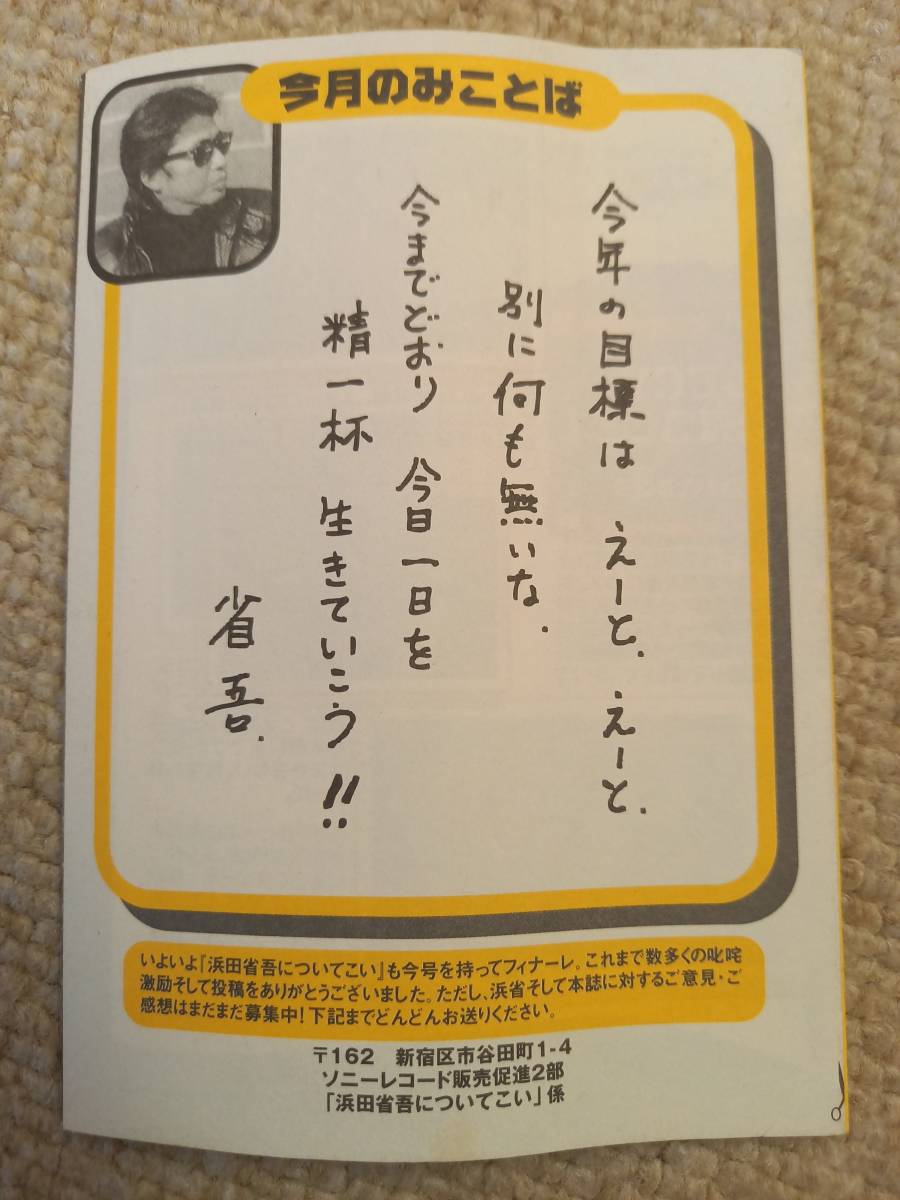 今月のみことば
今年の目標は えーと. えーと.
別に何も無いな.
今までどおり 今日一日を
精一杯 生きていこう!!
省吾.
いよいよ『浜田省吾についてこい』も今号を持ってフィナーレ。これまで数多くの叱咤
激励そして投稿をありがとうございました。ただし、浜省そして本誌に対するご意見・ご
感想はまだまだ募集中!下記までどんどんお送りください。
〒162 新宿区市谷田町1-4
ソニーレコード販売促進2部
「浜田省吾についてこい」係